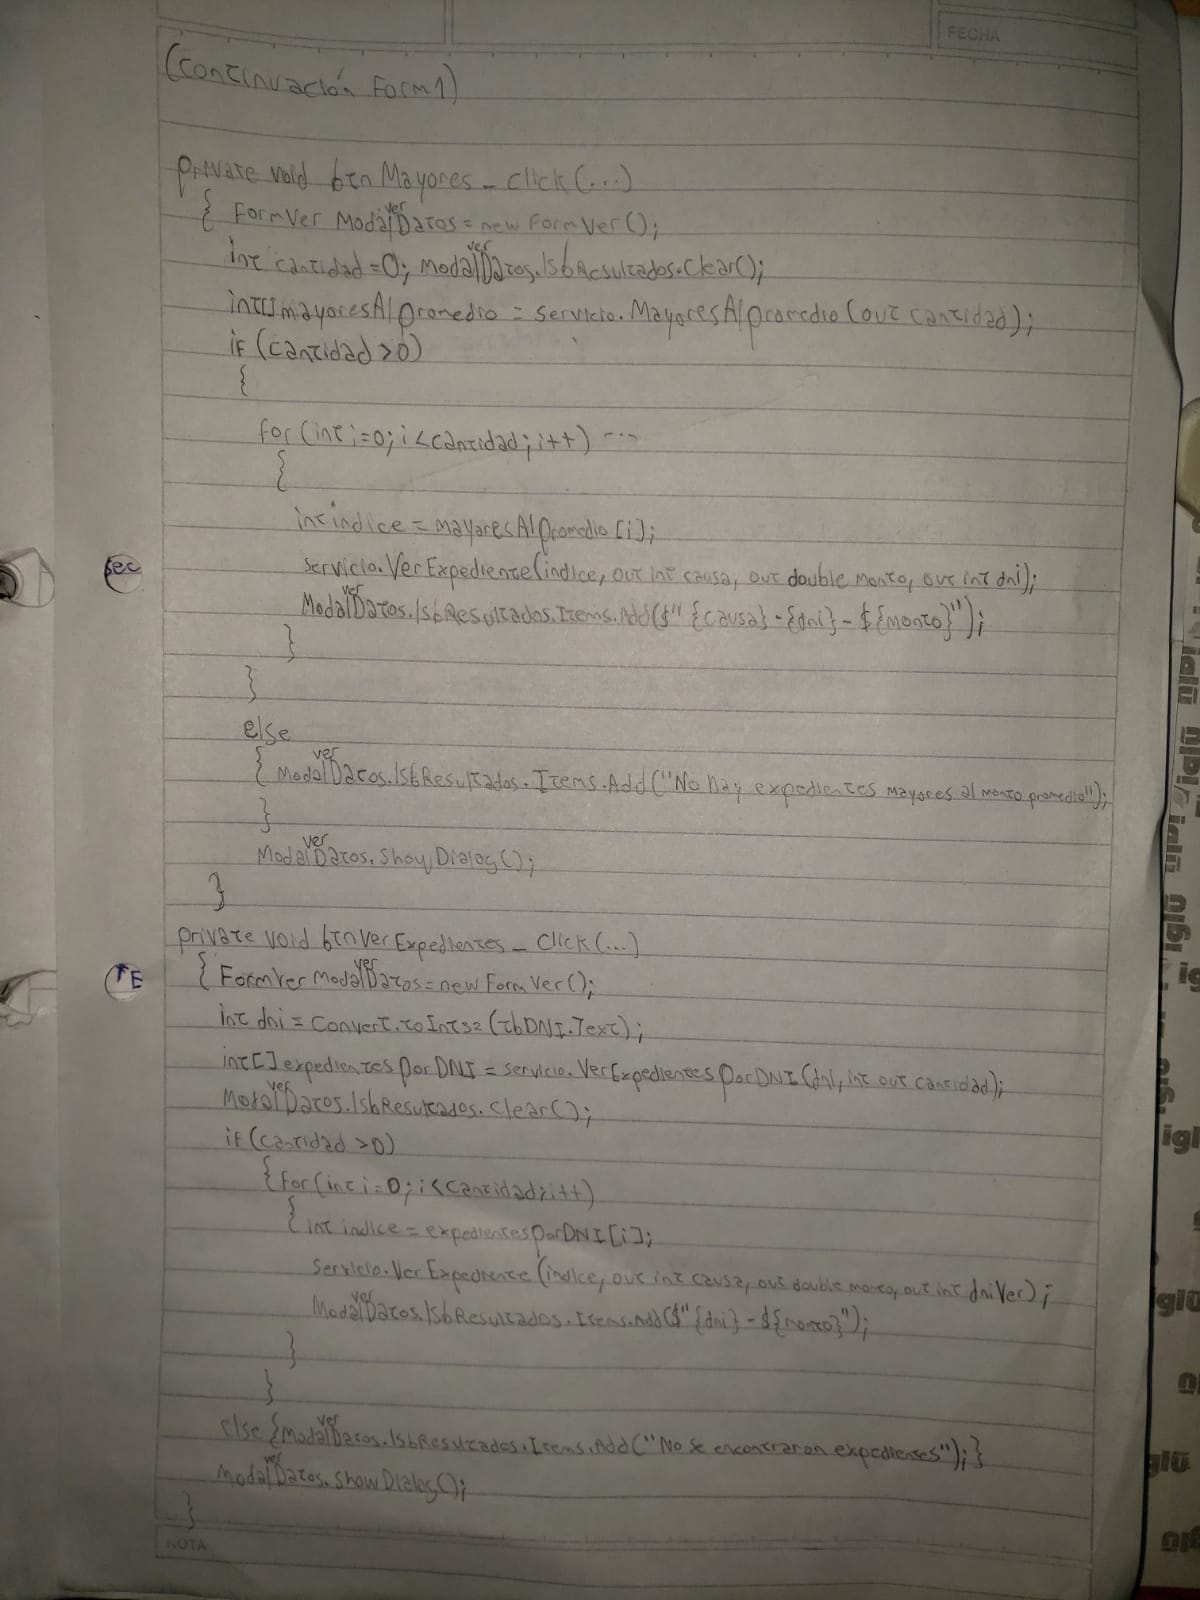 FECHA
(continuación Form1)
private void btnMayores_Click(...)
{ FormVer ModalverDatos = new FormVer();
int cantidad = 0; ModalverDatos.lsbResultados.Clear();
int[] mayoresAlpromedio = servicio.MayoresAlpromedio(out cantidad);
if (cantidad > 0)
{
for (int i=0; i<cantidad; i++) ...
{
int indice = mayoresAlpromedio[i];
sec
servicio.VerExpediente(indice, out int causa, out double monto, out int dni);
ModalverDatos.lsbResultados.Items.Add($"{causa}-{dni}-${monto}");
}
}
else
{ ModalverDatos.lsbResultados.Items.Add("No hay expedientes mayores al monto promedio");
}
ModalverDatos.ShowDialog();
}
private void btnVerExpedientes_Click(...)
{ FormVer ModalverDatos = new FormVer();
int dni = Convert.toInt32(tbDNI.Text);
int[] expedientesPorDNI = servicio.VerExpedientesPorDNI(dni, int out cantidad);
ModalverDatos.lsbResultados.Clear();
if (cantidad > 0)
{ for (int i=0; i<cantidad; i++)
{ int indice = expedientesPorDNI[i];
servicio.VerExpediente(indice, out int causa, out double monto, out int dniVer);
ModalverDatos.lsbResultados.Items.Add($"{dni}-${monto}");
}
}
else { ModalverDatos.lsbResultados.Items.Add("No se encontraron expedientes"); }
ModalverDatos.ShowDialog();
}
NOTA